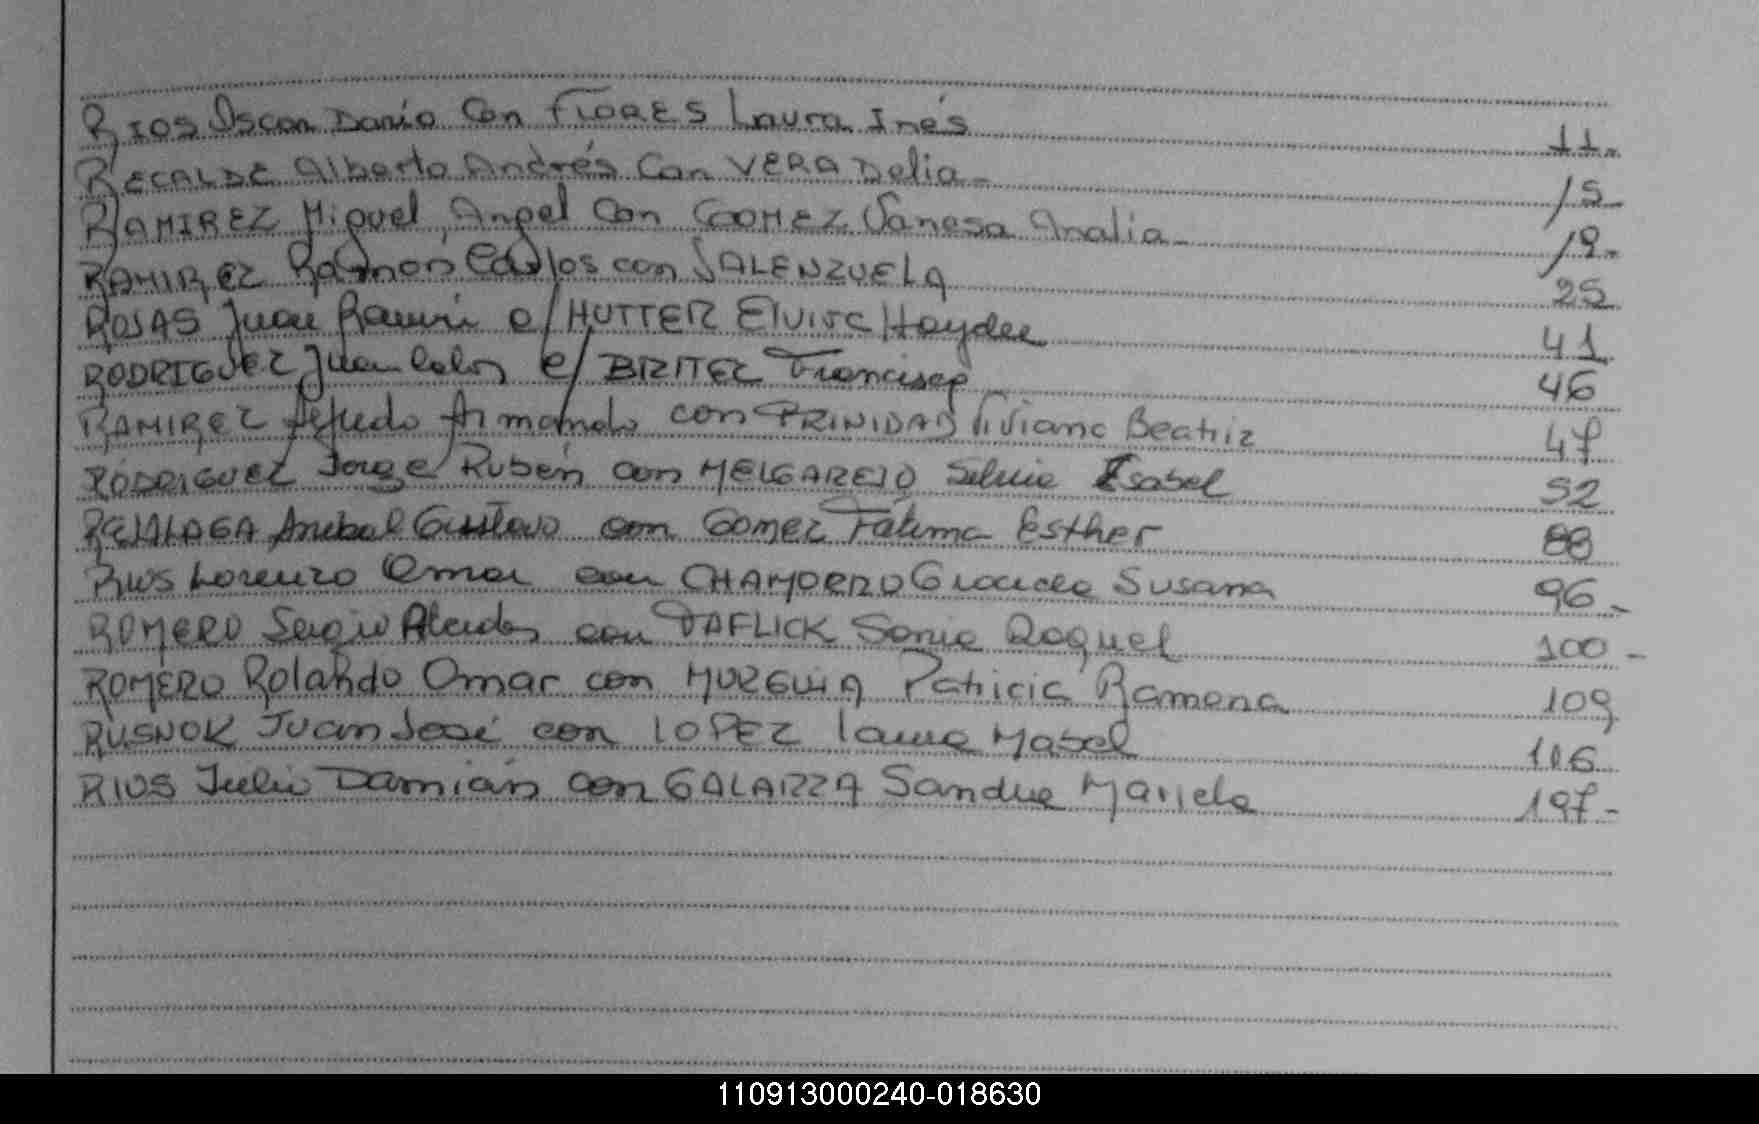 RIOS Oscar Dario Con FLORES Laura Inés 11.
RECALDE Alberto Andrés Con VERA Delia - 15-
RAMIREZ Miguel Angel Con GOMEZ Vanesa Analia - 19-
RAMIREZ Ramón Carlos con VALENZUELA 25
ROSAS Juan Ramón c/ HUTTER Elvira Haydee 41
RODRIGUEZ Juan Carlos c/ BRITEZ Francisca 46
RAMIREZ Alfredo Armando con TRINIDAD Viviana Beatriz 47
RODRIGUEZ Jorge Rubén con MELGAREJO Silvia Isabel 52
Anibal Gustavo con Gomez Fátima Esther 88
RIOS Lorenzo Omar con CHAMORRO Graciela Susana 96-
ROMERO Sergio Alcides con DAFLICK Sonia Raquel 100-
ROMERO Rolando Omar con MURGUIA Patricia Ramona 109
RUSNOK Juan José con LOPEZ Laura Mabel
RIOS Julio Damián con GALARZA Sandra Mariela 197-
110913000240-018630